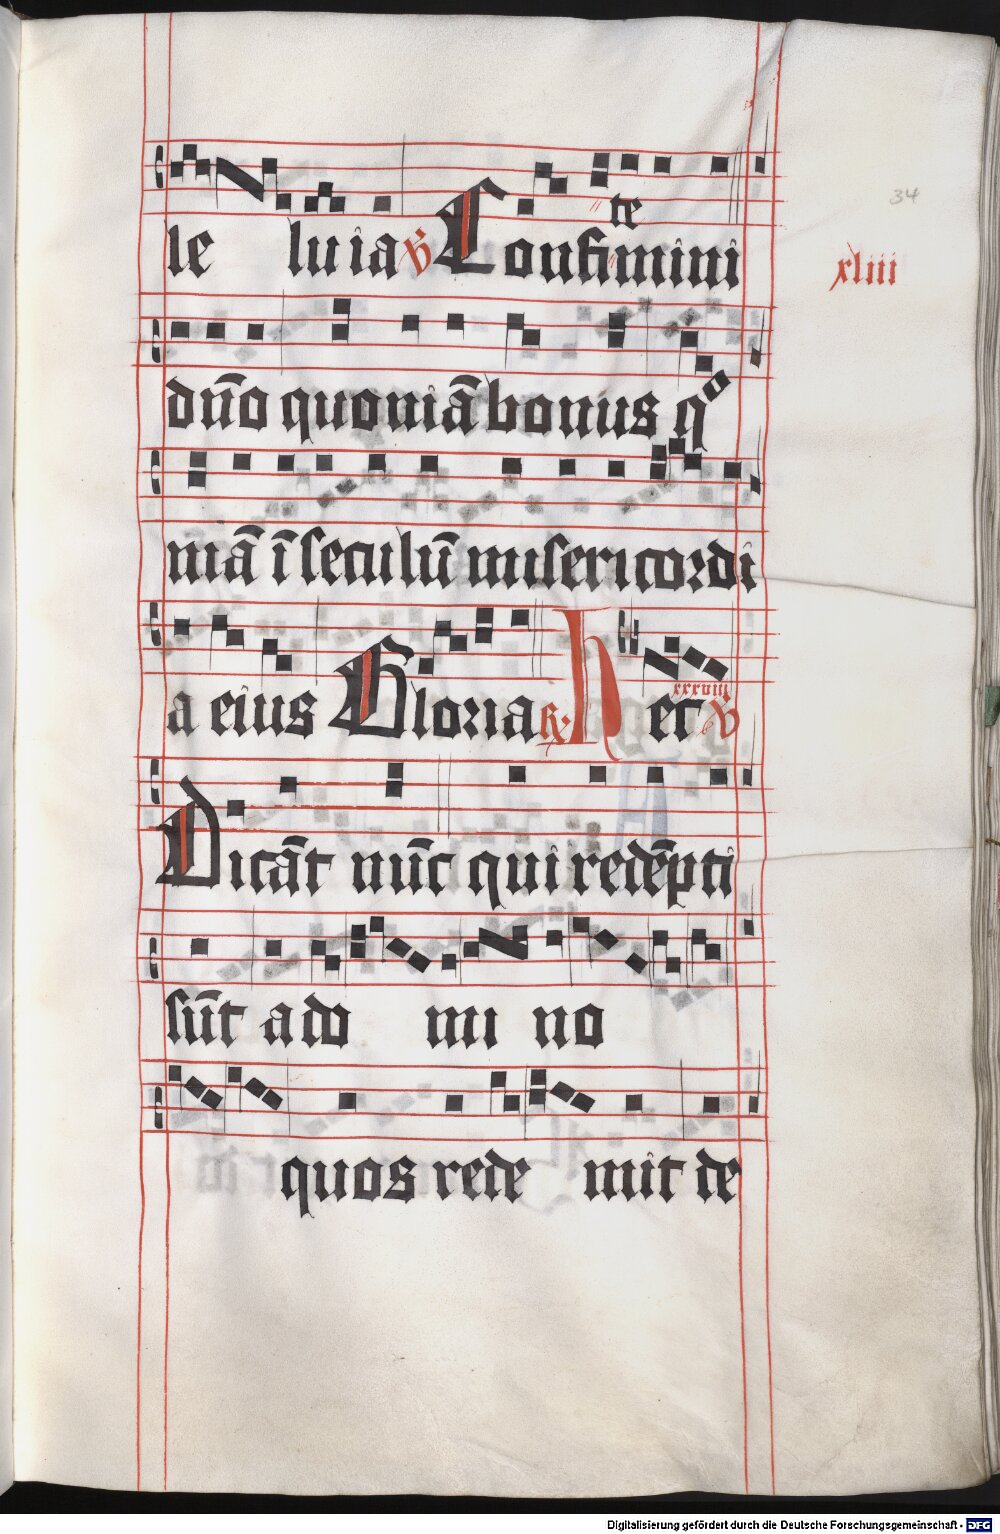 34
te
le lu ia ℣ Confimini
xliii
dn̄o quoniā bonus qo
niā ī seculū misericordi
a eius Gloria ℟ H ec ℣
xxxviii
Dicāt nūc qui redēpti
sūt a do mi no
quos rede mit de
Digitalisierung gefördert durch die Deutsche Forschungsgemeinschaft - DFG